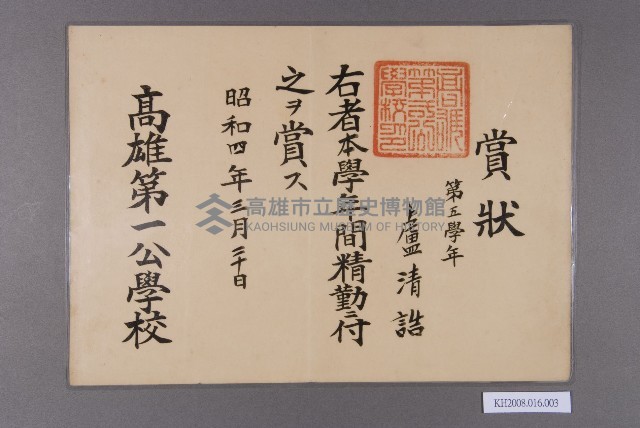 賞狀
第五學年
盧清誥
右者本學年間精勤ニ付
之ヲ賞ス
昭和四年三月二十日
高雄第一公學校
高雄市立歷史博物館
KAOHSIUNG MUSEUM OF HISTORY
KH2008.016.003